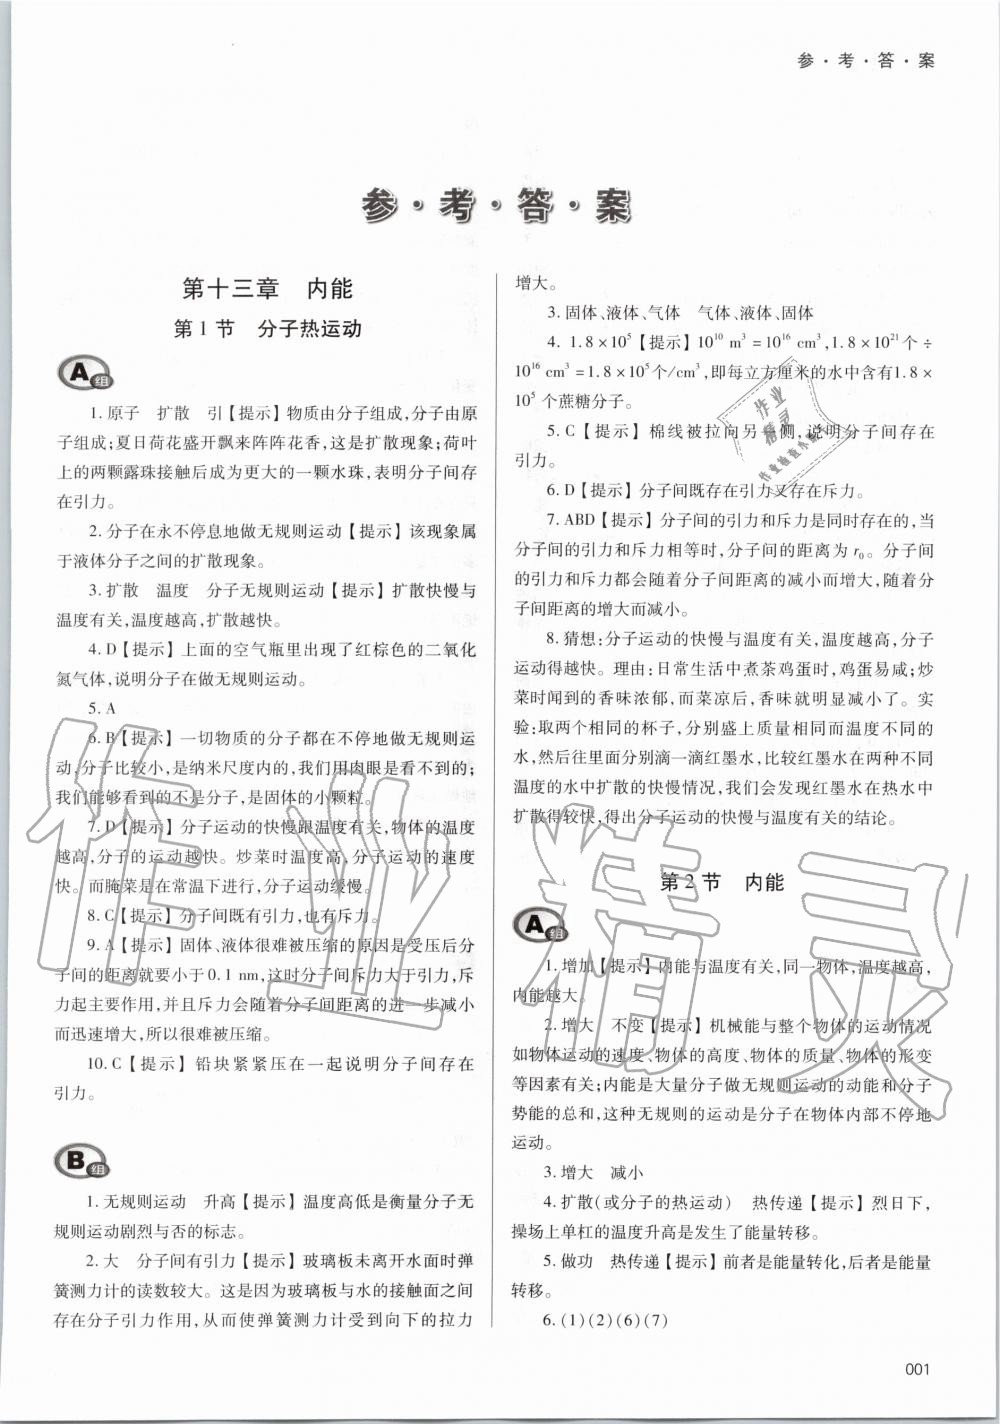 参·考·答·案
参·考·答·案
第十三章 内能
第1节 分子热运动
A组
1.原子 扩散 引【提示】物质由分子组成,分子由原
子组成;夏日荷花盛开飘来阵阵花香,这是扩散现象;荷叶
上的两颗露珠接触后成为更大的一颗水珠,表明分子间存
在引力。
2.分子在永不停息地做无规则运动【提示】该现象属
于液体分子之间的扩散现象。
3.扩散 温度 分子无规则运动【提示】扩散快慢与
温度有关,温度越高,扩散越快。
4.D【提示】上面的空气瓶里出现了红棕色的二氧化
氮气体,说明分子在做无规则运动。
5.A
6.B【提示】一切物质的分子都在不停地做无规则运
动,分子比较小,是纳米尺度内的,我们用肉眼是看不到的;
我们能够看到的不是分子,是固体的小颗粒。
7.D【提示】分子运动的快慢跟温度有关,物体的温度
越高,分子的运动越快。炒菜时温度高,分子运动的速度
快。而腌菜是在常温下进行,分子运动缓慢。
8.C【提示】分子间既有引力,也有斥力。
9.A【提示】固体、液体很难被压缩的原因是受压后分
子间的距离就要小于0.1 nm,这时分子间斥力大于引力,斥
力起主要作用,并且斥力会随着分子间距离的进一步减小
而迅速增大,所以很难被压缩。
10.C【提示】铅块紧紧压在一起说明分子间存在
引力。
B组
1.无规则运动 升高【提示】温度高低是衡量分子无
规则运动剧烈与否的标志。
2.大 分子间有引力【提示】玻璃板未离开水面时弹
簧测力计的读数较大。这是因为玻璃板与水的接触面之间
存在分子引力作用,从而使弹簧测力计受到向下的拉力
增大。
3.固体、液体、气体 气体、液体、固体
4. 1.8×10⁵【提示】10¹⁰ m³=10¹⁶ cm³,1.8×10²¹个÷
10¹⁶ cm³=1.8×10⁵个/cm³,即每立方厘米的水中含有1.8×
10⁵ 个蔗糖分子。
5.C【提示】棉线被拉向另一侧,说明分子间存在
引力。
6.D【提示】分子间既存在引力又存在斥力。
7.ABD【提示】分子间的引力和斥力是同时存在的,当
分子间的引力和斥力相等时,分子间的距离为 r₀。分子间
的引力和斥力都会随着分子间距离的减小而增大,随着分
子间距离的增大而减小。
8.猜想:分子运动的快慢与温度有关,温度越高,分子
运动得越快。理由:日常生活中煮茶鸡蛋时,鸡蛋易咸;炒
菜时闻到的香味浓郁,而菜凉后,香味就明显减小了。实
验:取两个相同的杯子,分别盛上质量相同而温度不同的
水,然后往里面分别滴一滴红墨水,比较红墨水在两种不同
温度的水中扩散的快慢情况,我们会发现红墨水在热水中
扩散得较快,得出分子运动的快慢与温度有关的结论。
第2节 内能
A组
1.增加【提示】内能与温度有关,同一物体,温度越高,
内能越大。
2.增大 不变【提示】机械能与整个物体的运动情况
如物体运动的速度、物体的高度、物体的质量、物体的形变
等因素有关;内能是大量分子做无规则运动的动能和分子
势能的总和,这种无规则的运动是分子在物体内部不停地
运动。
3.增大 减小
4.扩散(或分子的热运动) 热传递【提示】烈日下,
操场上单杠的温度升高是发生了能量转移。
5.做功 热传递【提示】前者是能量转化,后者是能量
转移。
6.(1)(2)(6)(7)
001
作业精灵
作业
精灵